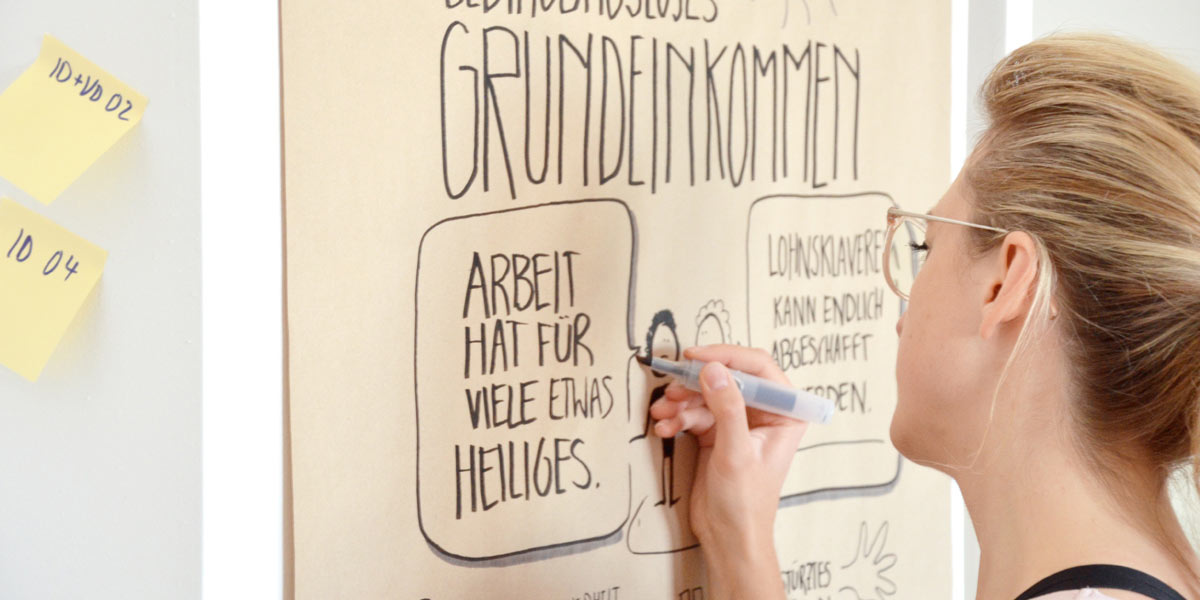 ID+VD 02
ID 04
BEDINGUNGSLOSES
GRUNDEINKOMMEN
ARBEIT
HAT FÜR
VIELE ETWAS
HEILIGES.
LOHNSKLAVEREI
KANN ENDLICH
ABGESCHAFFT
WERDEN.